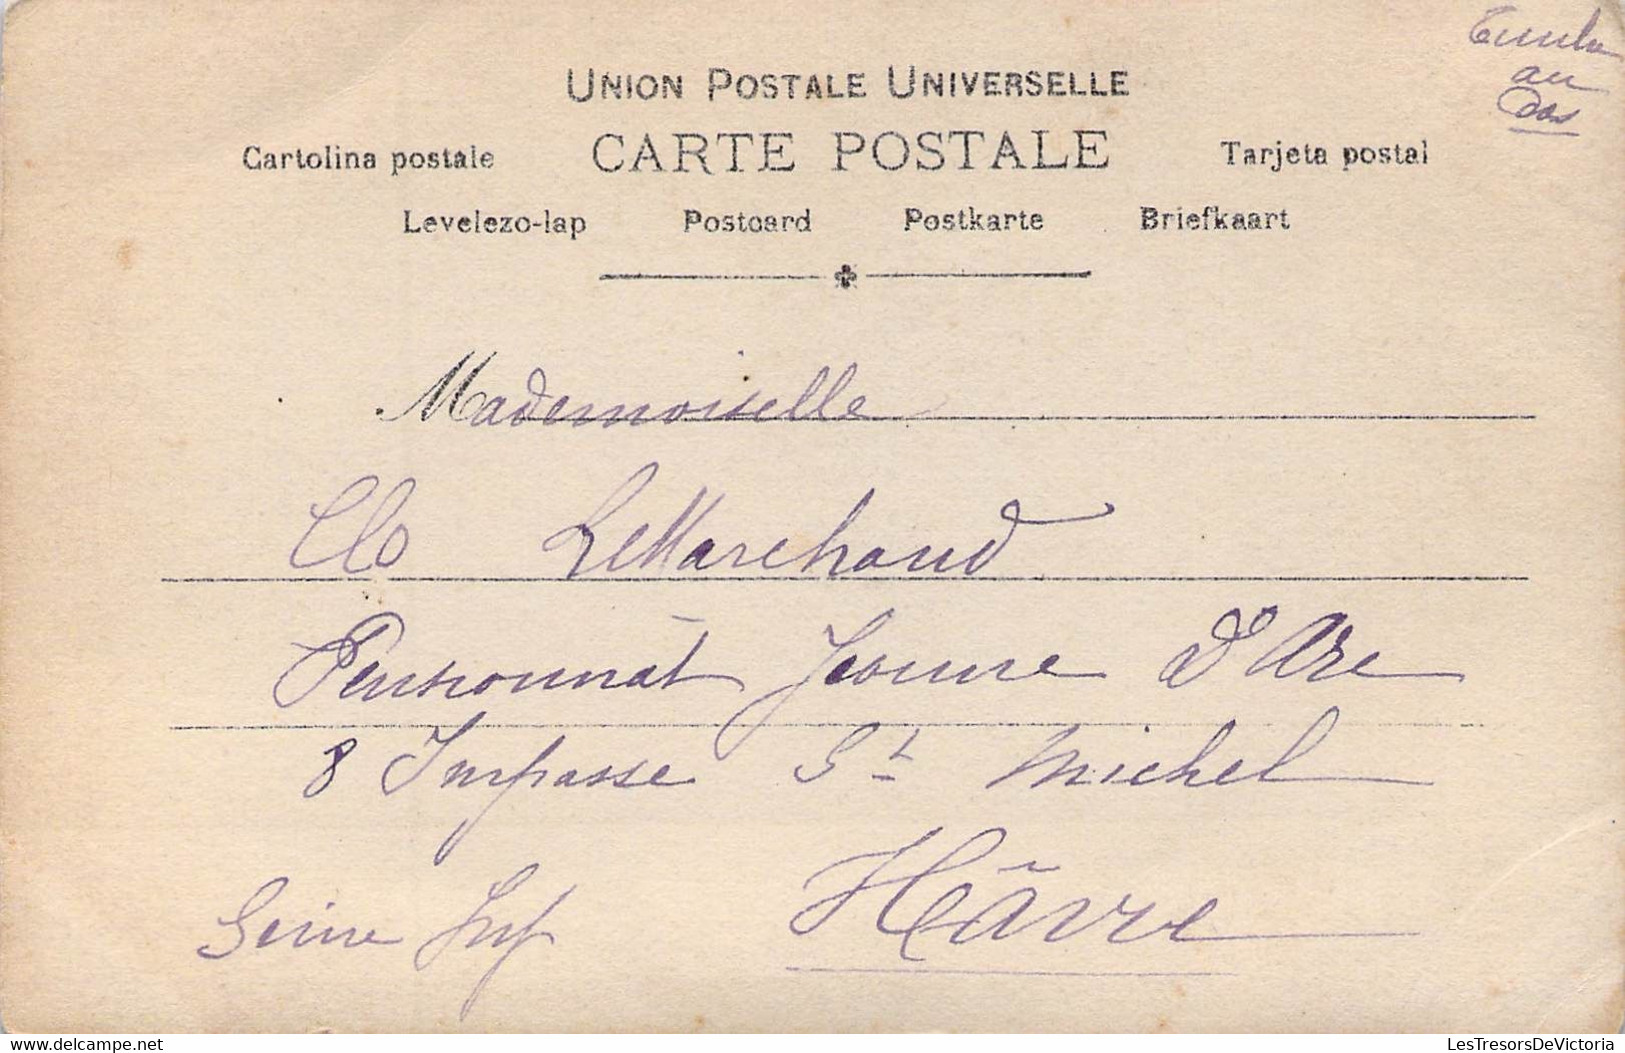 Timbre
au
dos
UNION POSTALE UNIVERSELLE
CARTE POSTALE
Cartolina postale
Tarjeta postal
Levelezo-lap Postcard Postkarte Briefkaart
Mademoiselle
Clo LeMarchand
Pensionnat Jeanne D'Arc
8 Impasse St Michel
Hâvre
Seine Inf
delcampe.net
LesTresorsDeVictoria